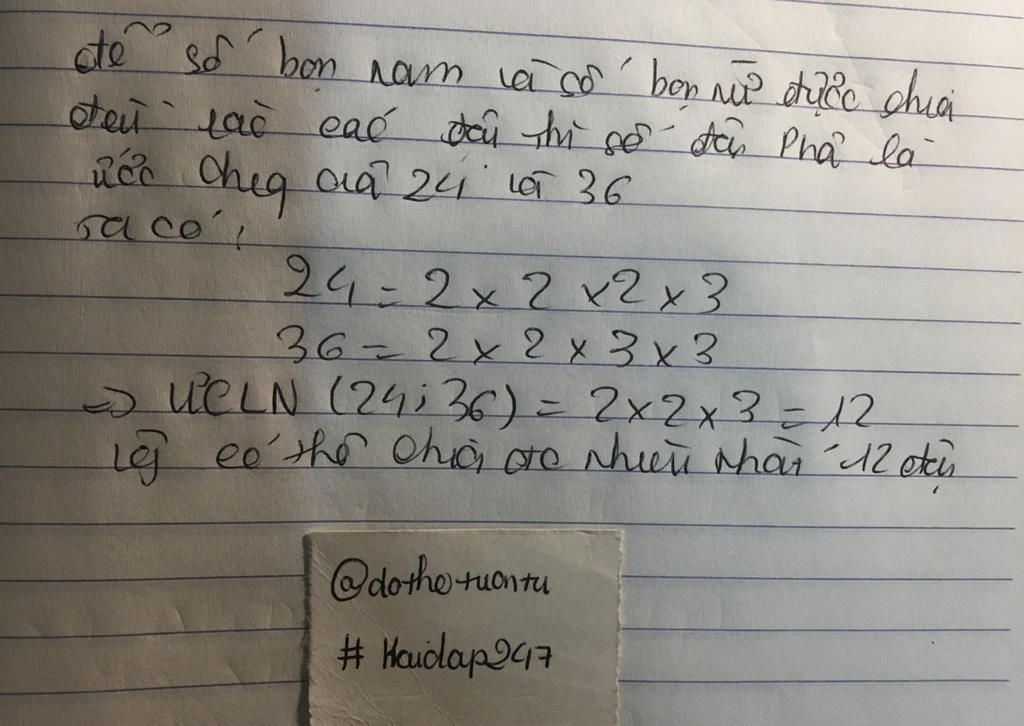 để số bạn nam và số bạn nữ được chia
đều vào các đội thì số đội phải là
ước chung của 24 và 36
ta có:
24 = 2 x 2 x 2 x 3
36 = 2 x 2 x 3 x 3
=> ƯCLN (24; 36) = 2 x 2 x 3 = 12
Vậy có thể chia được nhiều nhất 12 đội
@dothetuantu
# Hoidap247